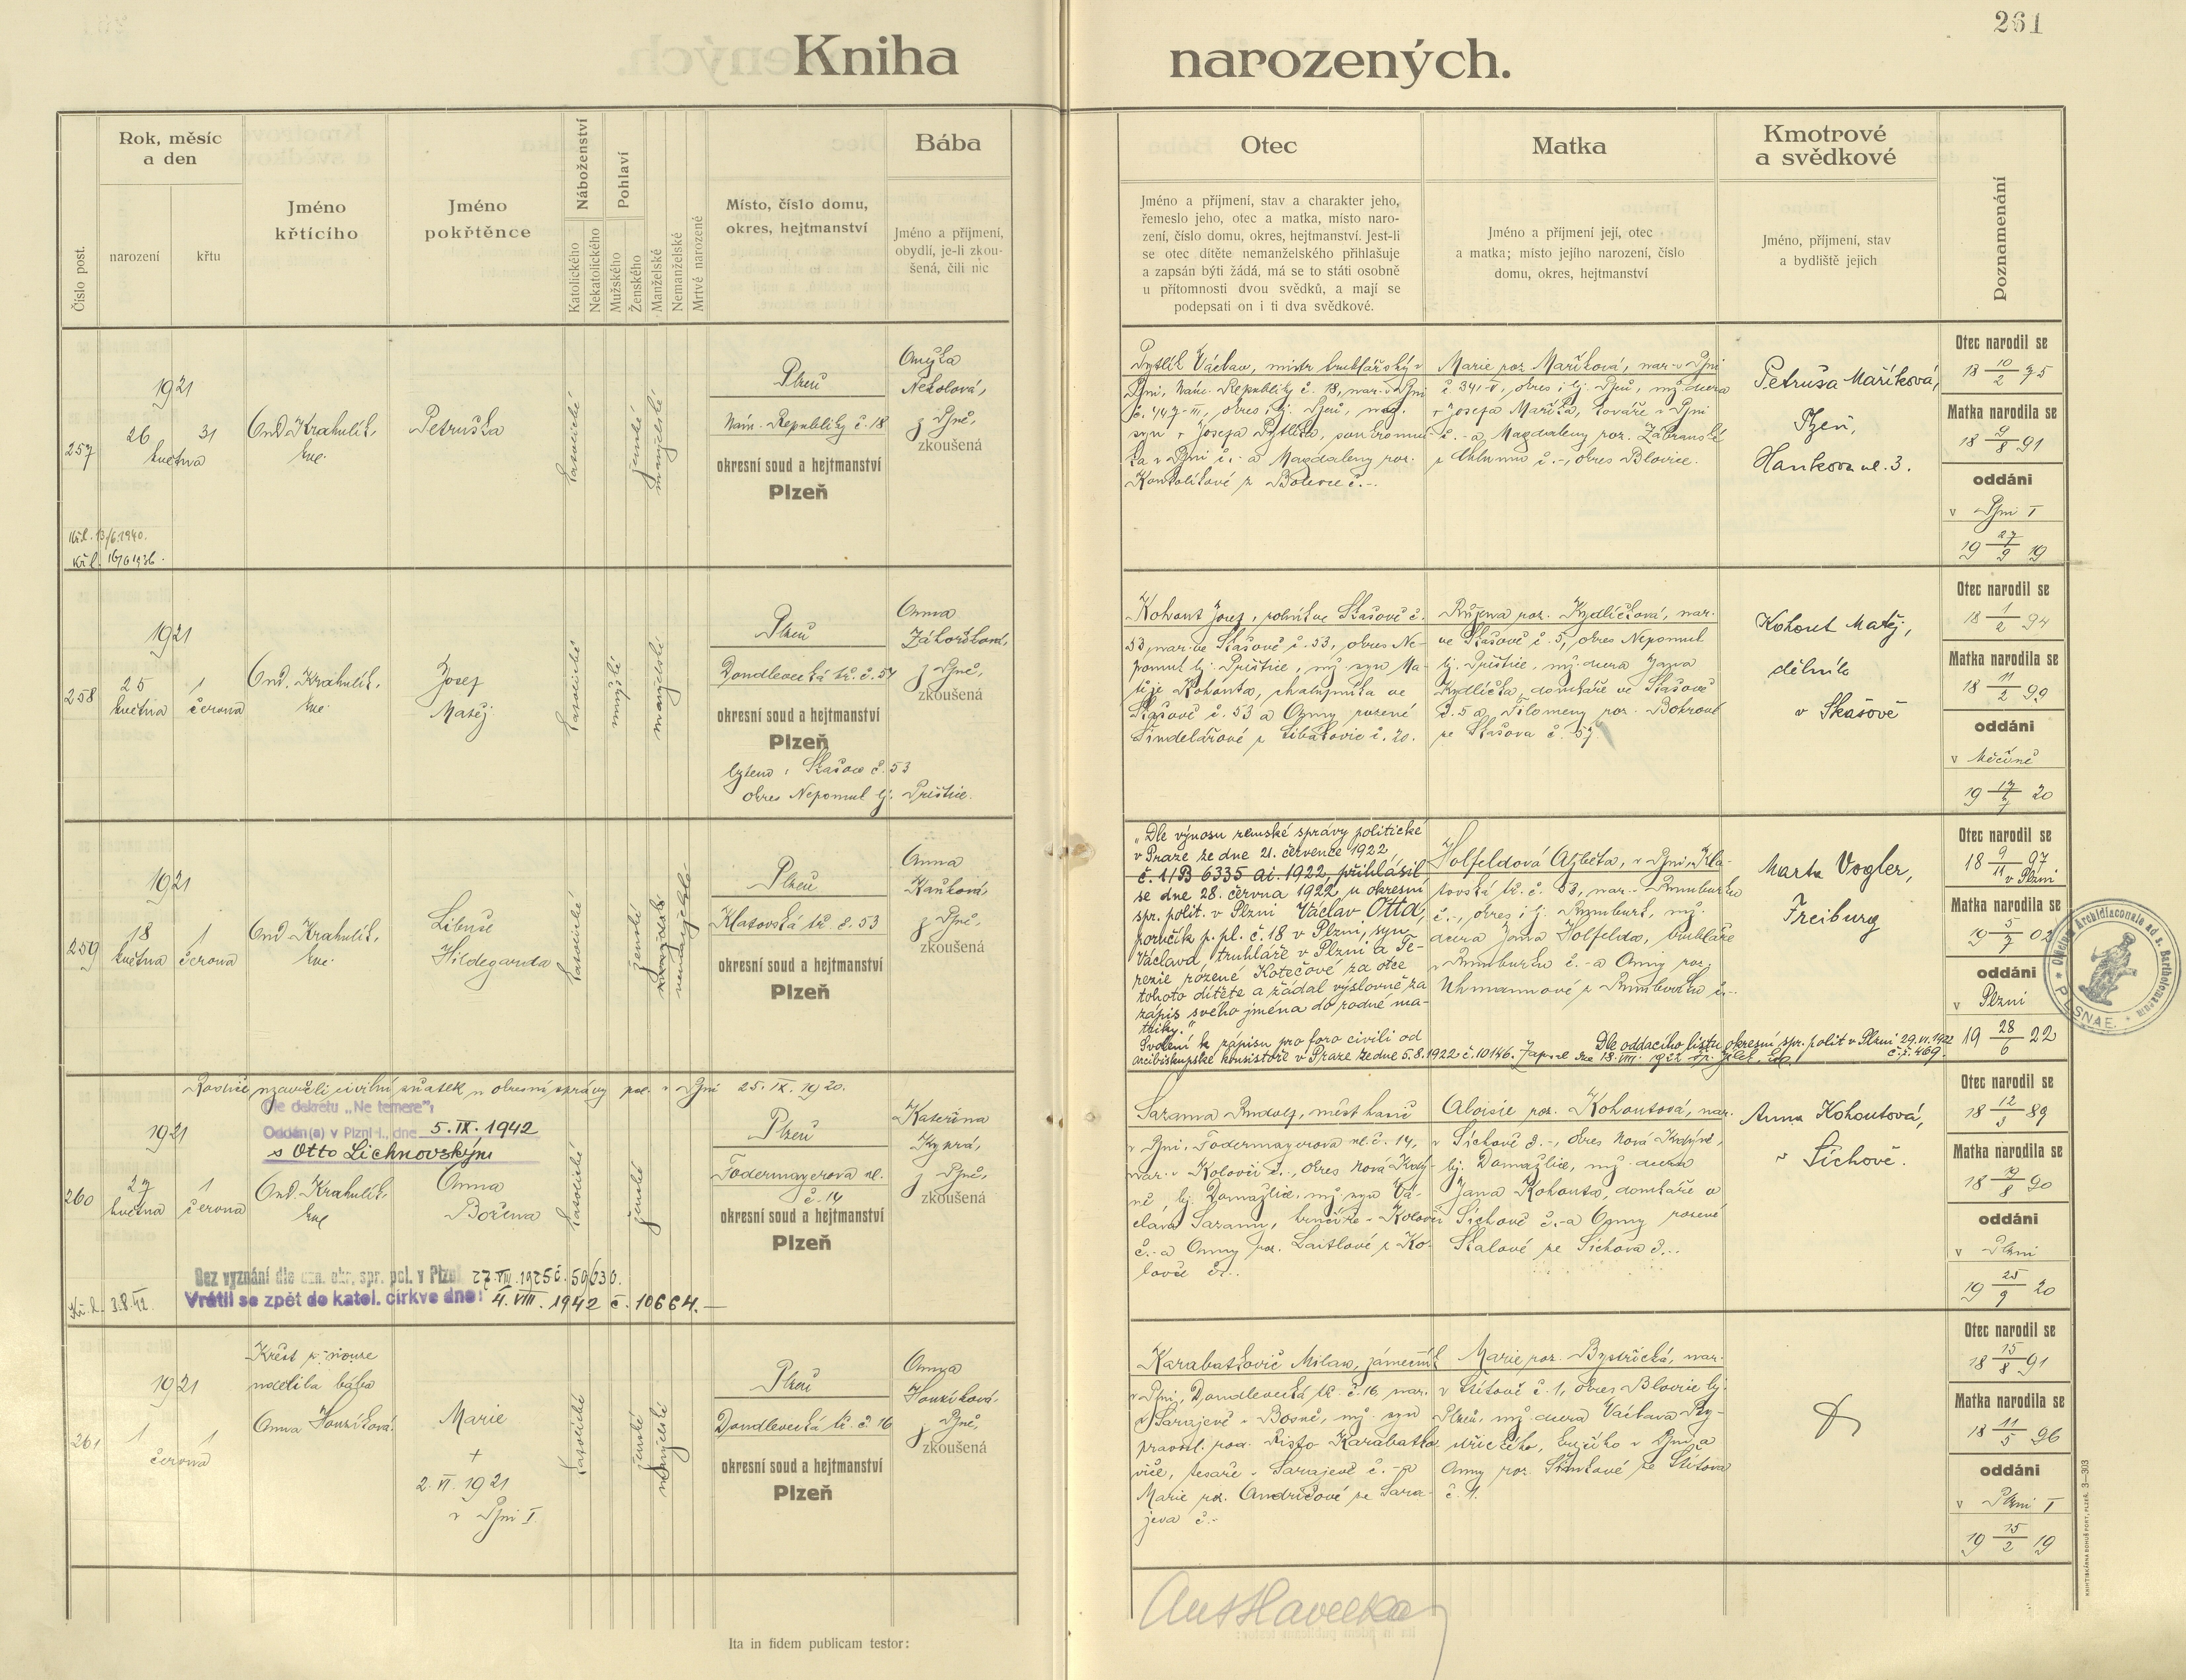 261
Kniha narozených.
Číslo post.
Rok, měsíc
a den
narození
křtu
Jméno
křtícího
Jméno
pokřtěnce
Náboženství
Katolického
Nekatolického
Pohlaví
Mužského
Ženského
Manželské
Nemanželské
Mrtvě narozené
Místo, číslo domu,
okres, hejtmanství
Bába
Jméno a příjmení,
obydlí, je-li zkou-
šená, čili nic
Otec
Jméno a příjmení, stav a charakter jeho,
řemeslo jeho, otec a matka, místo naro-
zení, číslo domu, okres, hejtmanství. Jest-li
se otec dítěte nemanželského přihlašuje
a zapsán býti žádá, má se to státi osobně
u přítomnosti dvou svědků, a mají se
podepsati on i ti dva svědkové.
Matka
Jméno a příjmení její, otec
a matka; místo jejího narození, číslo
domu, okres, hejtmanství
Kmotrové
a svědkové
Jméno, příjmení, stav
a bydliště jejich
Poznamenání
257
1921
26 31
května
Ond. Krahulík,
Petruška
katolické
ženské
manželské
Plzeň
Nám. Republiky č. 18
okresní soud a hejtmanství
Plzeň
Anežka
Nekolová,
z Plzně,
zkoušená
Pytlík Václav, mistr truhlářský v
Plzni, Nám. Republiky č. 18, nar. v Plzni
č. 447-III, okres i hj. Plzeň,
syn + Josefa Pytlíka, soukromní-
ka v Plzni č.- a Magdaleny roz.
z Bolevce č.-.
Marie roz. Maříková, nar. v Plzni
č. 34, okres i hj. Plzeň, mž. dcera
+ Josefa Maříka, kováře v Plzni
č.- a Magdaleny roz. Zábranské
z Chlumu č.-, okres Blovice.
Petruša Maříková,
Plzeň,
Hankova ul. 3.
Otec narodil se
18 10/2 95
Matka narodila se
18 9/8 91
oddáni
v Plzni I
19 27/9 19
Kř. l. 13/6 1940.
Kř. l. 16/6 1936.
258
1921
25 1
května června
Ond. Krahulík,
Josef
Matěj
katolické
mužské
manželské
Plzeň
Doudlevecká tř. č. 54
okresní soud a hejtmanství
Plzeň
Skašov č. 53
okres Nepomuk hj. Přeštice.
Anna
Záhořová,
z Plzně,
zkoušená
Kohout Josef, rolník ve Skašově č.
53, nar. ve Skašově č. 53, okres Ne-
pomuk hj. Přeštice, mž. syn Ma-
těje Kohouta, chalupníka ve
Skašově č. 53 a Anny rozené
Šindelářové z Libákovic č. 20.
Růžena roz. Kydlíčková, nar.
ve Skašově č. 5, okres Nepomuk
hj. Přeštice, mž. dcera Jana
Kydlíčka, domkáře ve Skašově
č. 5 a Filomeny roz.
ze Skašova č. 57.
Kohout Matěj,
dělník
v Skašově
Otec narodil se
18 1/2 94
Matka narodila se
18 11/2 99
oddáni
v Měčíně
19 17/7 20
259
1921
18 1
května června
Ond. Krahulík,
Libuše
Hildegarda
katolické
ženské
manželské
nemanželské
Plzeň
Klatovská tř. č. 53
okresní soud a hejtmanství
Plzeň
Anna
Kaňková,
z Plzně,
zkoušená
„Dle výnosu zemské správy politické
v Praze ze dne 21. července 1922,
č. 1/B 6335 ai. 1922, přihlásil
se dne 28. června 1922 u okresní
spr. polit. v Plzni Václav Otta,
poručík p. pl. č. 18 v Plzni, syn
Václava, truhláře v Plzni a Te-
rezie rozené Kotečové za otce
tohoto dítěte a žádal výslovně za
zápis svého jména do rodné ma-
triky.“
Svolení k zápisu pro foro civili od
arcibiskupské konsistoře v Praze ze dne 5.8.1922 č. 10146.
Holfeldová Alžběta, v Plzni, Kla-
tovská tř. č. 53, nar. v Rumburku
č.-, okres i hj. Rumburk, mž.
dcera Jana Holfelda, truhláře
v Rumburku č.- a Anny roz.
Uhmannové z Rumburku č.-.
Dle oddacího listu okresní spr. polit v Plzni 29.VI.1922
č.j. 469.
Marta Vogler,
Freiburg
Otec narodil se
18 9/11 97
v Plzni
Matka narodila se
19 5/7 02
oddáni
v Plzni
19 28/6 22
Officium Archidiaconale ad s. Bartholomaeum
PLSNAE.
Rodiče uzavřeli civilní sňatek u okresní správy pol. v Plzni 25. IX. 1920.
Dle dekretu „Ne temere“:
Oddán(a) v Plzni-I., dne 5. IX. 1942
s Otto Lichnovským
260
1921
27 1
května června
Ond. Krahulík,
Anna
Božena
katolické
ženské
Plzeň
Fodermayerova ul.
č. 14
okresní soud a hejtmanství
Plzeň
Kateřina
Kyprá,
z Plzně,
zkoušená
Sazama Rudolf, měst. hasič
v Plzni, Fodermayerova ul. č. 14,
nar. v Kolovči č.-, okres Nová Kdy-
ně, hj. Domažlice, mž. syn Vá-
clava Sazamy, hrnčíře v Kolovči
č.- a Anny roz. Laitlové z Ko-
lovče č.-.
Aloisie roz. Kohoutová, nar.
v Sichově č.-, okres Nová Kdyně,
hj. Domažlice, mž. dcera
Jana Kohouta, domkáře v
Sichově č.- a Anny rozené
Skalové ze Sichova č.-.
Anna Kohoutová,
v Sichově.
Otec narodil se
18 12/3 89
Matka narodila se
18 19/8 90
oddáni
v Plzni
19 25/9 20
Bez vyznání dle ozn. okr. spr. pol. v Plzni 27. VIII. 1925 č. 59630.
Vrátil se zpět do katol. církve dne: 4. VIII. 1942 č. 10664.—
Kř. l. 3.8.42.
261
1921
1 1
června
Křest z nouze
udělila bába
Anna Houzíková.
Marie
+
2. VI. 1921
v Plzni I.
katolické
ženské
manželské
Plzeň
Doudlevecká tř. č. 16
okresní soud a hejtmanství
Plzeň
Anna
Houzíková,
z Plzně,
zkoušená
Karabatkovič Milan, zámečník
v Plzni, Doudlevecká tř. č. 16, nar.
v Sarajevě v Bosně, mž. syn
pravosl. roz. Risto Karabatko-
viče, tesaře v Sarajevě č.- a
Marie roz. Andričové ze Sara-
jeva č.-
Marie roz. Bystřická, nar.
v Štítově č. 1, okres Blovice hj.
Plzeň, mž. dcera Václava By-
střického, v Plzni a
Anny roz. ze Štítova
č. 1.
Otec narodil se
18 15/8 91
Matka narodila se
18 11/5 96
oddáni
v Plzni I
19 15/2 19
Ita in fidem publicam testor:
Ant Havelka